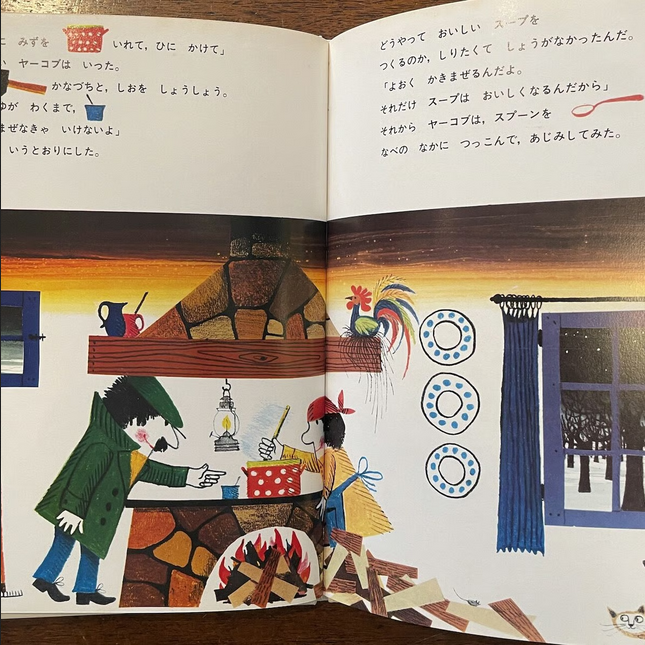 みずを いれて，ひに かけて」
ヤーコブは いった。
かなづちと，しおを しょうしょう。
わくまで，
まぜなきゃ いけないよ」
いうとおりにした。
どうやって おいしい スープを
つくるのか，しりたくて しょうがなかったんだ。
「よおく かきまぜるんだよ。
それだけ スープは おいしくなるんだから」
それから ヤーコブは，スプーンを
なべの なかに つっこんで，あじみしてみた。